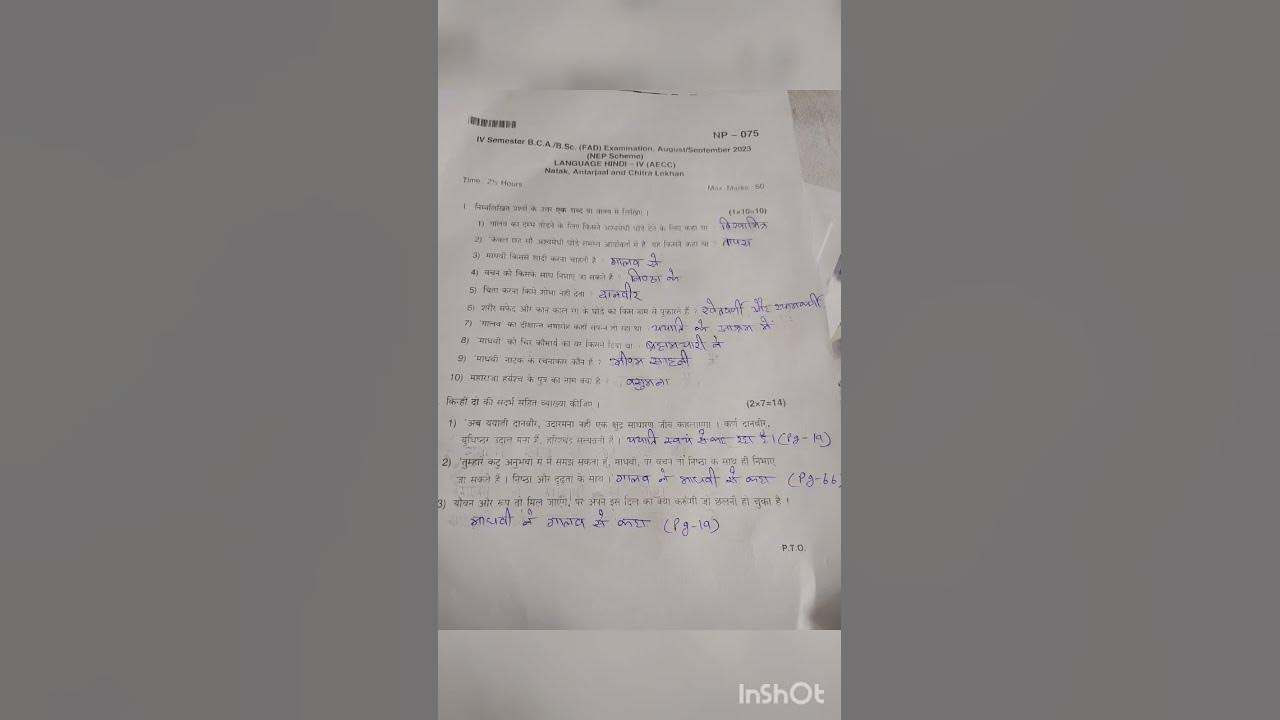 NP – 075
IV Semester B.C.A./B.Sc. (FAD) Examination, August/September 2023
(NEP Scheme)
LANGUAGE HINDI – IV (AECC)
Natak, Antarjaal and Chitra Lekhan
Time : 2½ Hours Max. Marks : 60
I. निम्नलिखित प्रश्नों के उत्तर एक शब्द या वाक्य में लिखिए । (1×10=10)
1) गालव का दम्भ तोड़ने के लिए किसने अश्वमेधी घोड़े देने के लिए कहा था विश्वामित्र
2) 'केवल छह सौ अश्वमेधी घोड़े समस्त आर्यावर्त में है' यह किसने कहा था तापस
3) माधवी किससे शादी करना चाहती है गालव से
4) वचन को किसके साथ निभाए जा सकते है निष्ठा के
5) चिंता करना किसे शोभा नहीं देता दानवीर
6) शरीर सफेद और कान काले रंग के घोड़े को किस नाम से पुकारते हैं श्वेतवर्णी और श्यामकर्णी
7) 'गालव' का दीक्षान्त समारोह कहाँ संपन्न हो रहा था ययाति के आश्रम में
8) 'माधवी' को चिर कौमार्य का वर किसने दिया था ब्रह्मचारी ने
9) 'माधवी' नाटक के रचनाकार कौन है भीष्म साहनी
10) महाराजा हर्यश्च के पुत्र का नाम क्या है वसुमना
किन्हीं दो की संदर्भ सहित व्याख्या कीजिए । (2×7=14)
1) 'अब ययाती दानवीर, उदारमना नहीं एक क्षुद्र साधारण जीव कहलाएगा । कर्ण दानवीर,
युधिष्ठिर उदात्त मना हैं, हरिश्चंद्र सत्यव्रती है । ययाति स्वयं से कह रहा है। (Pg-19)
2) 'तुम्हारे कटु अनुभवों में मैं समझ सकता हूँ, माधवी, पर वचन तो निष्ठा के साथ ही निभाए
जा सकते है । निष्ठा और दृढ़ता के साथ । गालव ने माधवी से कहा (Pg-66)
3) यौवन और रूप तो मिल जाएंगे, पर अपने इस दिल का क्या करूंगी जो छलनी हो चुका है ।
माधवी ने गालव से कहा (Pg-19)
P.T.O.
InShOt